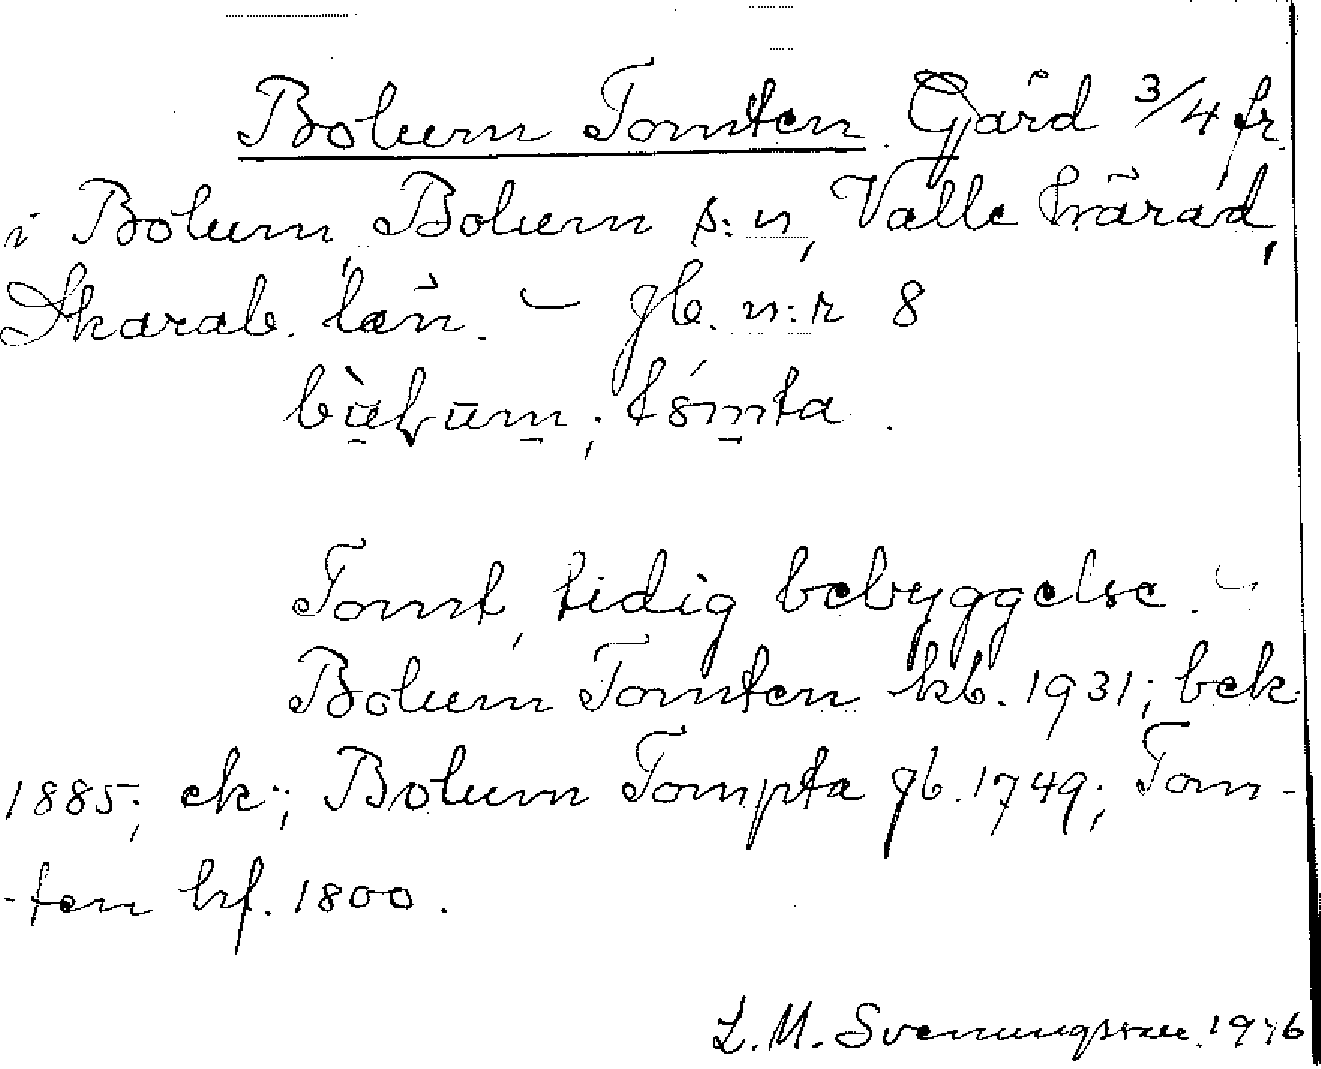 Bolum Tomten. Gård 3/4 fr.
i Bolum, Bolum s:n, Valle härad,
Skarab. län. – gb. n:r 8
Tomt, tidig bebyggelse. –
Bolum Tomten kb. 1931; bek
1885; ek; Bolum Tompta gb. 1749; Tom-
-ten hf. 1800.
L. M. Svenungsson. 1946